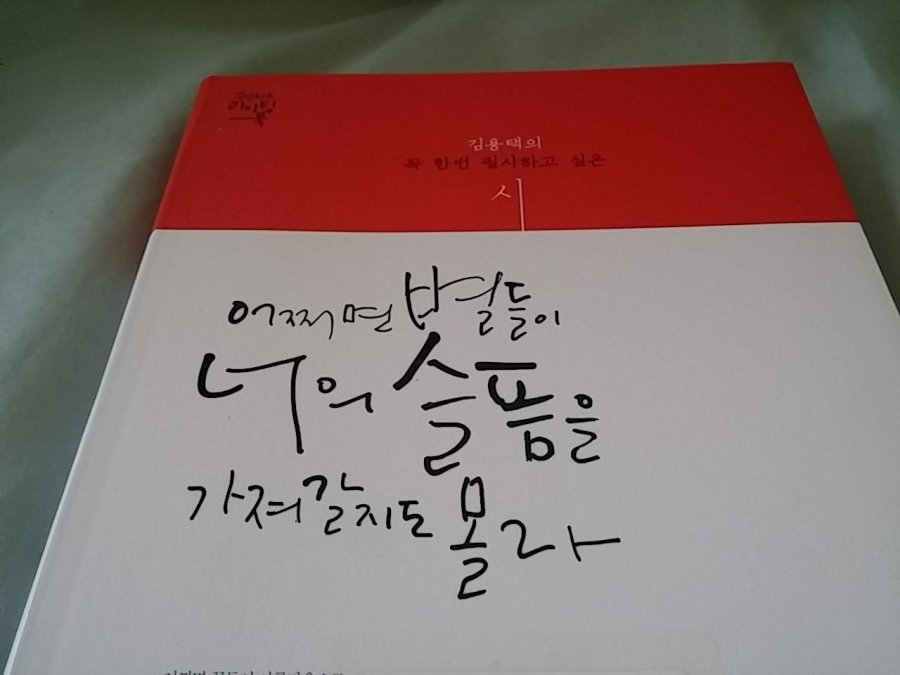 라이팅
북
김용택의
꼭 한번 필사하고 싶은
시
어쩌면 별들이
너의 슬픔을
가져갈지도 몰라